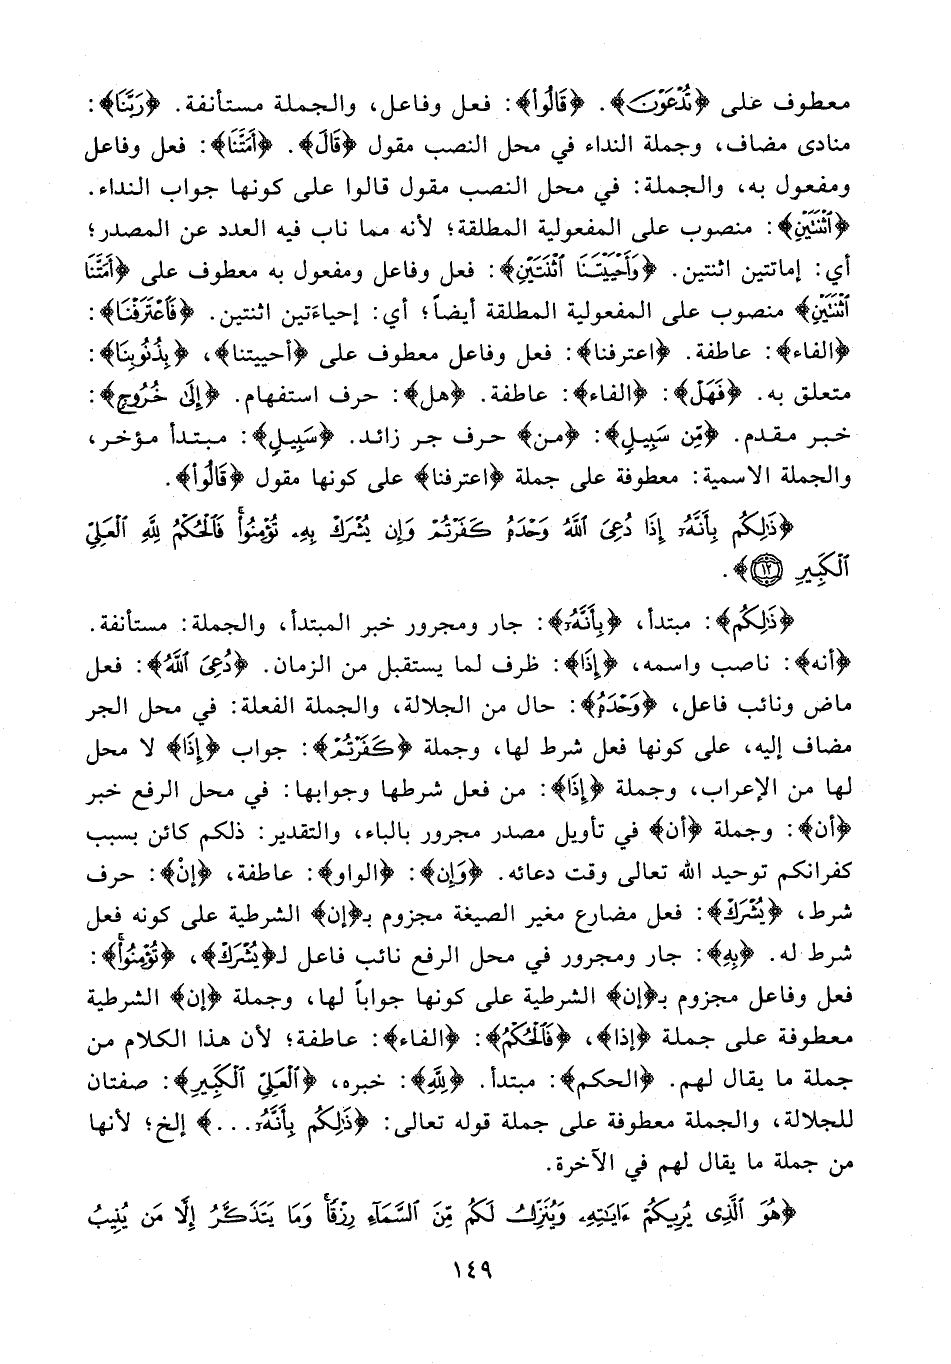 معطوف على ﴿تُدْعَوْنَ﴾. ﴿قَالُوا۟﴾: فعل وفاعل، والجملة مستأنفة. ﴿رَبَّنَا﴾:
منادى مضاف، وجملة النداء في محل النصب مقول ﴿قَالَ﴾. ﴿أَمَتَّنَا﴾: فعل وفاعل
ومفعول به، والجملة: في محل النصب مقول قالوا على كونها جواب النداء.
﴿ٱثْنَتَيْنِ﴾: منصوب على المفعولية المطلقة؛ لأنه مما ناب فيه العدد عن المصدر؛
أي: إماتتين اثنتين. ﴿وَأَحْيَيْتَنَا ٱثْنَتَيْنِ﴾: فعل وفاعل ومفعول به معطوف على ﴿أَمَتَّنَا
ٱثْنَتَيْنِ﴾ منصوب على المفعولية المطلقة أيضاً؛ أي: إحياءَتين اثنتين. ﴿فَٱعْتَرَفْنَا﴾:
﴿الفاء﴾: عاطفة. ﴿اعترفنا﴾: فعل وفاعل معطوف على ﴿أحييتنا﴾، ﴿بِذُنُوبِنَا﴾:
متعلق به. ﴿فَهَلْ﴾: ﴿الفاء﴾: عاطفة. ﴿هل﴾: حرف استفهام. ﴿إِلَىٰ خُرُوجٍ﴾:
خبر مقدم. ﴿مِّن سَبِيلٍ﴾: ﴿من﴾ حرف جر زائد. ﴿سَبِيلٍ﴾: مبتدأ مؤخر،
والجملة الاسمية: معطوفة على جملة ﴿اعترفنا﴾ على كونها مقول ﴿قَالُوا۟﴾.
﴿ذَٰلِكُم بِأَنَّهُۥٓ إِذَا دُعِىَ ٱللَّهُ وَحْدَهُۥ كَفَرْتُمْ وَإِن يُشْرَكْ بِهِۦ تُؤْمِنُوا۟ۚ فَٱلْحُكْمُ لِلَّهِ ٱلْعَلِىِّ
ٱلْكَبِيرِ ١٢﴾.
﴿ذَٰلِكُم﴾: مبتدأ، ﴿بِأَنَّهُۥ﴾: جار ومجرور خبر المبتدأ، والجملة: مستأنفة.
﴿أنه﴾: ناصب واسمه، ﴿إِذَا﴾: ظرف لما يستقبل من الزمان. ﴿دُعِىَ ٱللَّهُ﴾: فعل
ماض ونائب فاعل، ﴿وَحْدَهُۥ﴾: حال من الجلالة، والجملة الفعلة: في محل الجر
مضاف إليه، على كونها فعل شرط لها، وجملة ﴿كَفَرْتُمْ﴾: جواب ﴿إِذَا﴾ لا محل
لها من الإعراب، وجملة ﴿إِذَا﴾: من فعل شرطها وجوابها: في محل الرفع خبر
﴿أن﴾: وجملة ﴿أن﴾ في تأويل مصدر مجرور بالباء، والتقدير: ذلكم كائن بسبب
كفرانكم توحيد الله تعالى وقت دعائه. ﴿وَإِن﴾: ﴿الواو﴾: عاطفة، ﴿إنْ﴾: حرف
شرط، ﴿يُشْرَكْ﴾: فعل مضارع مغير الصيغة مجزوم بـ﴿إن﴾ الشرطية على كونه فعل
شرط له. ﴿بِهِ﴾: جار ومجرور في محل الرفع نائب فاعل لـ﴿يُشْرَكْ﴾، ﴿تُؤْمِنُوا۟ۚ﴾:
فعل وفاعل مجزوم بـ﴿إن﴾ الشرطية على كونها جواباً لها، وجملة ﴿إن﴾ الشرطية
معطوفة على جملة ﴿إذا﴾، ﴿فَٱلْحُكْمُ﴾: ﴿الفاء﴾: عاطفة؛ لأن هذا الكلام من
جملة ما يقال لهم. ﴿الحكم﴾: مبتدأ. ﴿لِلَّهِ﴾: خبره، ﴿ٱلْعَلِىِّ ٱلْكَبِيرِ﴾: صفتان
للجلالة، والجملة معطوفة على جملة قوله تعالى: ﴿ذَٰلِكُم بِأَنَّهُۥ...﴾ إلخ؛ لأنها
من جملة ما يقال لهم في الآخرة.
﴿هُوَ ٱلَّذِى يُرِيكُمْ ءَايَٰتِهِۦ وَيُنَزِّلُ لَكُم مِّنَ ٱلسَّمَآءِ رِزْقًاۚ وَمَا يَتَذَكَّرُ إِلَّا مَن يُنِيبُ
١٤٩